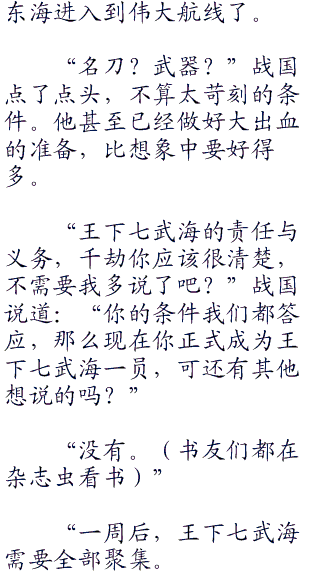 东海进入到伟大航线了。
“名刀？武器？”战国
点了点头，不算太苛刻的条
件。他甚至已经做好大出血
的准备，比想象中要好得
多。
“王下七武海的责任与
义务，千劫你应该很清楚，
不需要我多说了吧？”战国
说道：“你的条件我们都答
应，那么现在你正式成为王
下七武海一员，可还有其他
想说的吗？”
“没有。（书友们都在
杂志虫看书）”
“一周后，王下七武海
需要全部聚集。